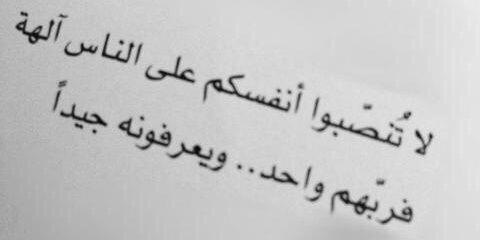 لا تُنصّبوا أنفسكم على الناس آلهة
فربّهم واحد.. ويعرفونه جيداً